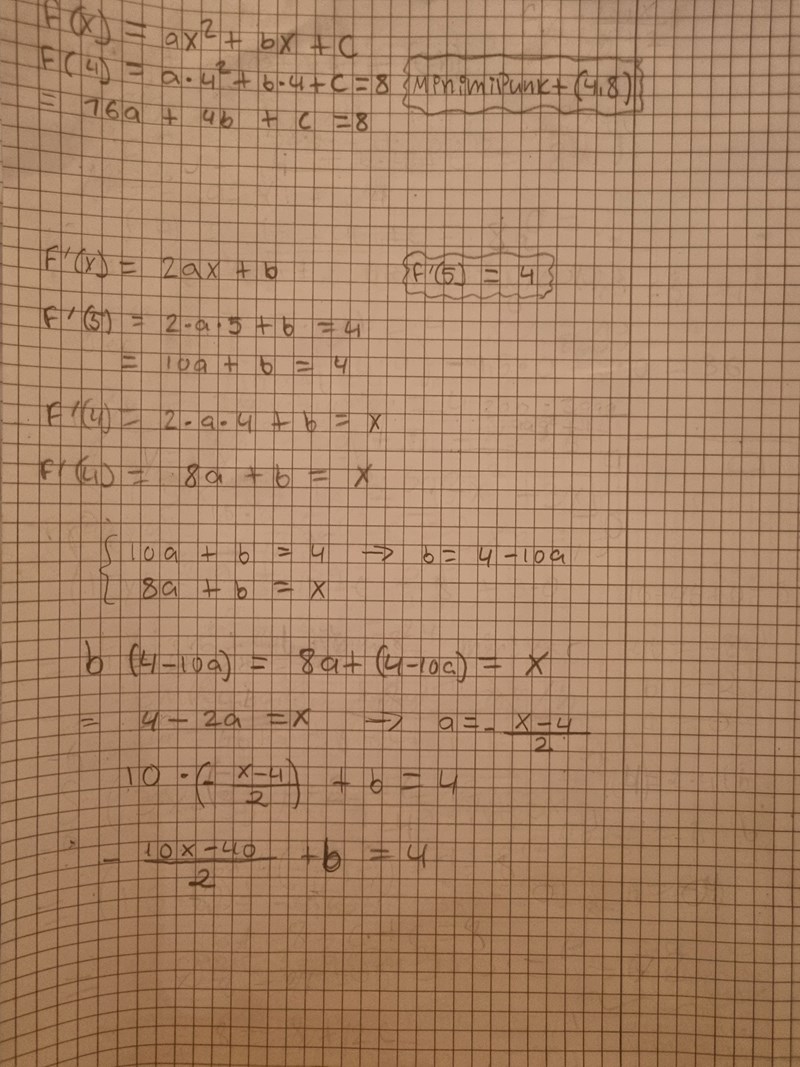 F(x) = ax² + bx + c
F(4) = a·4² + b·4 + c = 8 {Minimipunkt (4,8)}
= 16a + 4b + c = 8
F'(x) = 2ax + b {F'(5) = 4}
F'(5) = 2·a·5 + b = 4
= 10a + b = 4
F'(4) = 2·a·4 + b = x
F'(4) = 8a + b = x
{ 10a + b = 4 → b = 4-10a
{ 8a + b = x
b (4-10a) = 8a + (4-10a) = x
= 4 - 2a = x → a = - (x-4)/2
10 · (- (x-4)/2) + b = 4
- (10x-40)/2 + b = 4